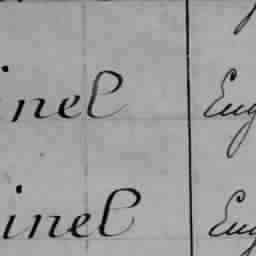 inel Eug
inel Eug